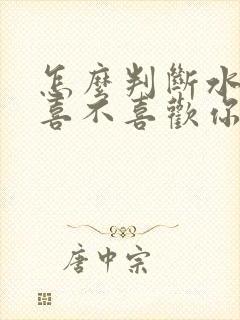 怎麼判斷水
喜不喜歡你
唐中宗